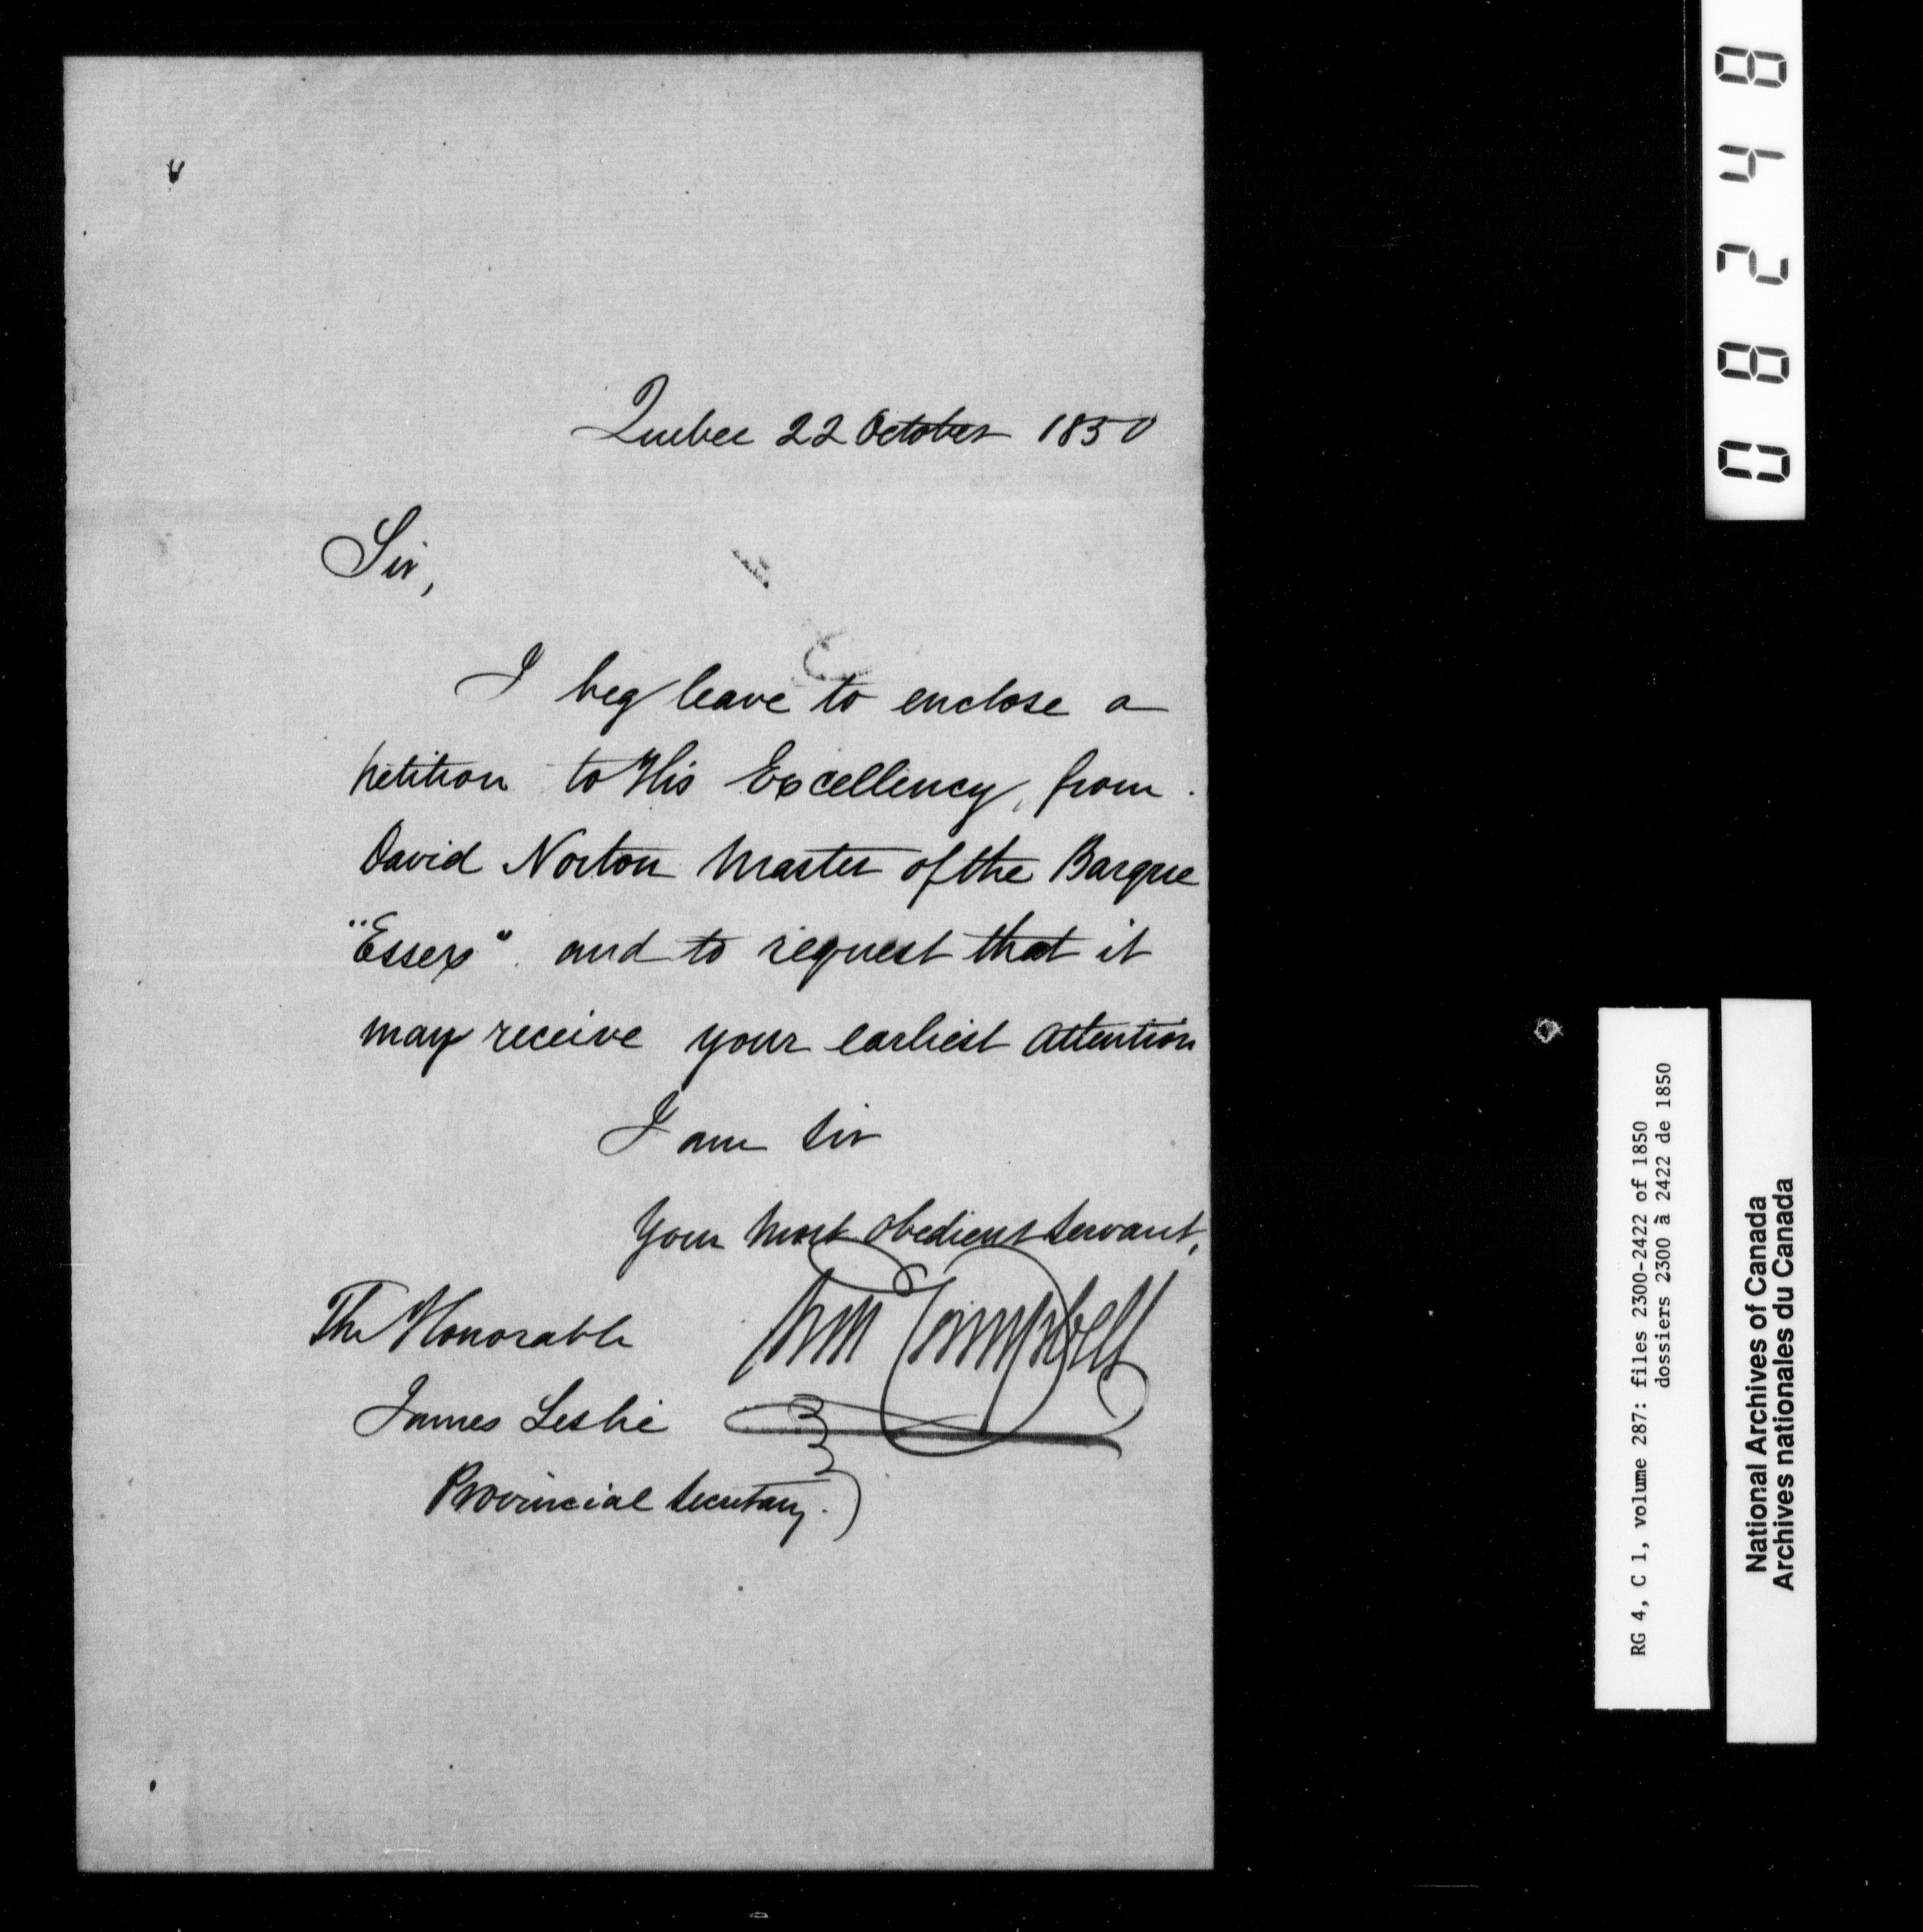 Quebec 22 October 1850
Sir,
I beg leave to enclose a
petition to His Excellency, from
David Norton Master of the Barque
"Essex" and to request that it
may receive your earliest attention
I am Sir
Your most obedient servant,
Wm Campbell
The Honorable
James Leslie
Provincial Secretary.
08248
RG 4, C 1, volume 287: files 2300-2422 of 1850
dossiers 2300 à 2422 de 1850
National Archives of Canada
Archives nationales du Canada